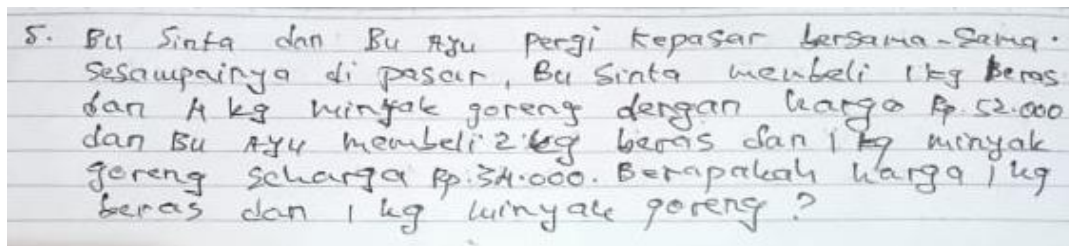 5. Bu Sinta dan Bu Ayu pergi kepasar bersama-sama.
Sesampainya di pasar, Bu Sinta membeli 1 kg Beras
dan 4 kg minyak goreng dengan harga Rp. 52.000
dan Bu Ayu membeli 2 kg beras dan 1 kg minyak
goreng seharga Rp. 34.000. Berapakah harga 1 kg
beras dan 1 kg minyak goreng?